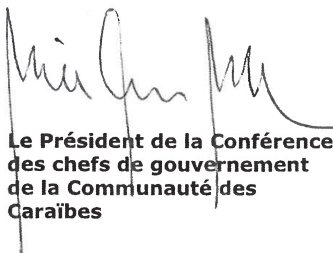 Le Président de la Conférence
des chefs de gouvernement
de la Communauté des
Caraïbes